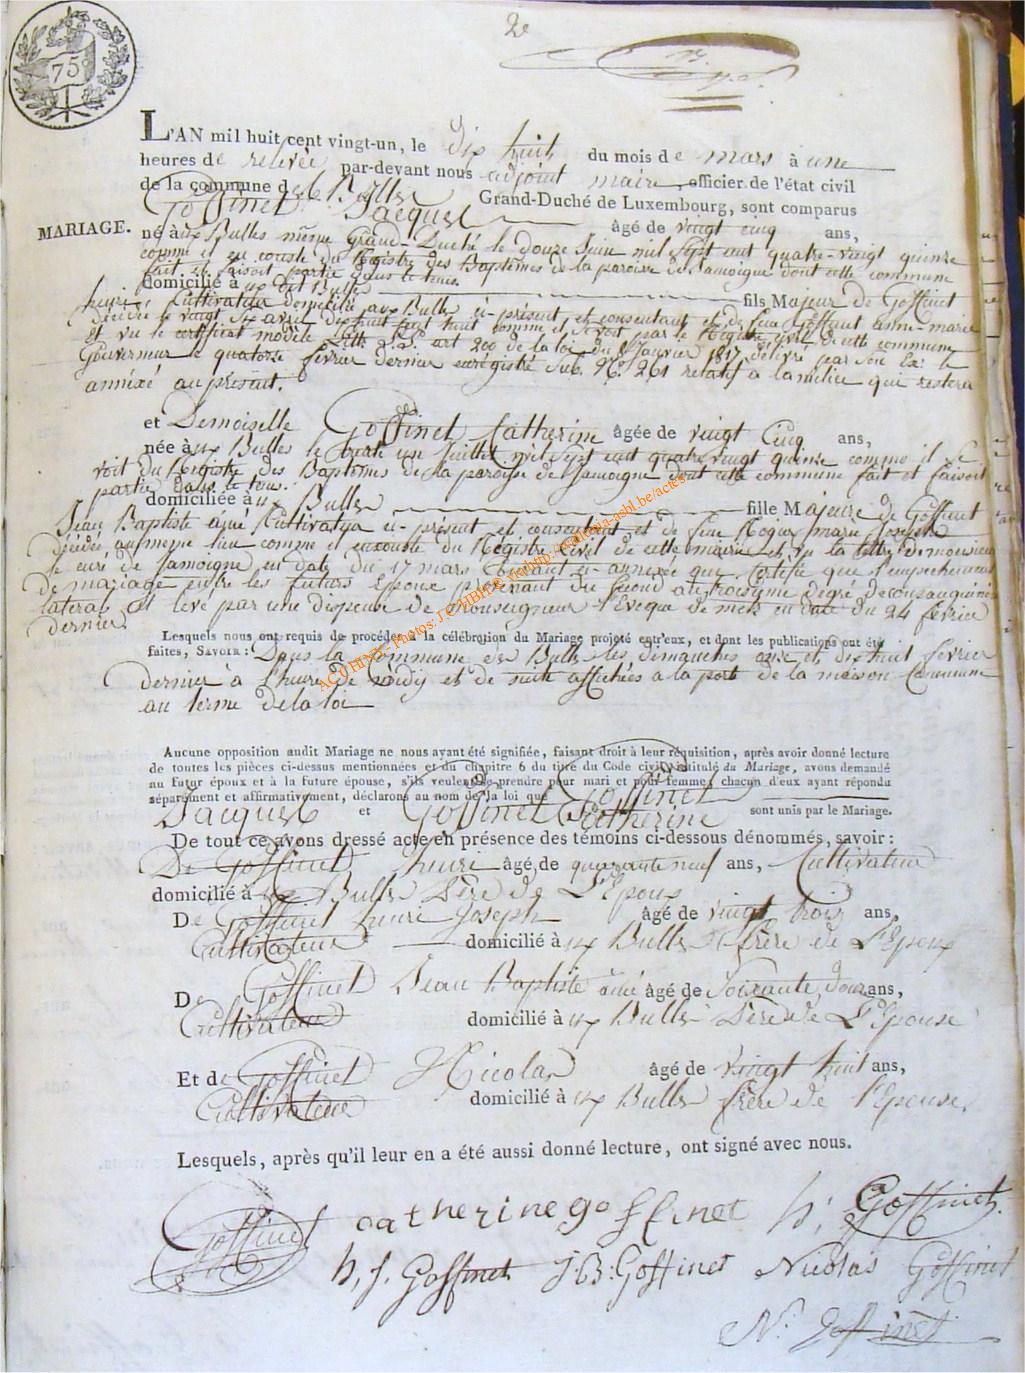 2e
75
L'AN mil huit cent vingt-un, le dix huit du mois de mars à une
heures de relevée par-devant nous adjoint maire, officier de l'état civil
de la commune des Bulles Grand-Duché de Luxembourg, sont comparus
MARIAGE.
Goffinet Jacques âgé de vingt cinq ans,
né aux Bulles même Grand-Duché le douze Juin mil sept cent quatre-vingt quinze
comme il en conste du Registre des Baptêmes de la paroisse de Jamoigne dont cette commune
fait et faisoit partie dans ce tems.
domicilié à ux dit Bulles fils Majeur de Goffinet
henri Cultivateur domicilié aux Bulles ci-présent et consentant et de feue Goffinet anne-marie
décédée le vingt six avril dix huit cent huit comme il se voit par le Registre civil de cette commune
et vu le certificat modèle Lettre art 200 de la loi du 8 Janvier 1817 délivré par son Ex: le
Gouverneur le quatorze février dernier enrégistré sub. No. 261 relatif à la milice qui restera
annéxé au présent.
et Demoiselle Goffinet Catherine âgée de vingt Cinq ans,
née à ux Bulles le trente un Juillet mil sept cent quatre vingt quinze comme il se
voit du Registre des Baptêmes de la paroisse de Jamoigne dont cette commune fait et faisoit
partie dans ce tems.
domiciliée à ux Bulles fille Majeure de Goffinet
Jean Baptiste ainé Cultivateur ci-présent et consentant et de feue Rogier marie Josephe
décédée au meme lieu comme il en conste du Registre civil de cette mairie et vu la lettre de monsieur
le curé de Jamoigne en date du 17 mars Courant ci-annexée qui Certifie que l'empechement
de mariage entre les futurs Epoux provenant du second au troisieme degré de consanguinité
latéral est levé par une dispense de Monseigneur l'Eveque de metz en date du 24 février
dernier.
Lesquels nous ont requis de procéder à la célébration du Mariage projeté entr'eux, et dont les publications ont été
faites, SAVOIR: Dans la Commune des Bulles les dimanches onze et dix huit février
dernier à l'heure de midy et de suite affichées a la porte de la maison Commune
au terme de la loi
Aucune opposition audit Mariage ne nous ayant été signifiée, faisant droit à leur réquisition, après avoir donné lecture
de toutes les pièces ci-dessus mentionnées et du chapitre 6 du titre du Code civil intitulé du Mariage, avons demandé
au futur époux et à la future épouse, s'ils veulent se prendre pour mari et pour femme; chacun d'eux ayant répondu
séparément et affirmativement, déclarons au nom de la loi que Goffinet
Jacques et Goffinet Catherine sont unis par le Mariage.
De tout ce avons dressé acte en présence des témoins ci-dessous dénommés, savoir:
De Goffinet henri âgé de quarante neuf ans, Cultivateur
domicilié à ux Bulles Père de L'Epoux
De Goffinet henri Joseph âgé de vingt trois ans,
Cultivateur domicilié à ux Bulles frère de L'Epoux
De Goffinet Jean Baptiste ainé âgé de Soixante douze ans,
Cultivateur domicilié à ux Bulles Père de L'Epouse
Et de Goffinet Nicolas âgé de vingt huit ans,
Cultivateur domicilié à ux Bulles frère de l'Epouse.
Lesquels, après qu'il leur en a été aussi donné lecture, ont signé avec nous.
Goffinet catherine goffinet h: Goffinet.
h, j. Goffinet J:B: Goffinet Nicolas Goffinet
N. Goffinet